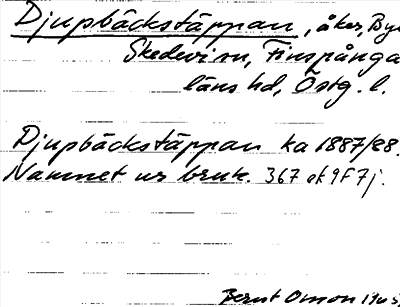 Djupbäckstäppan, åker, By
Skedevi sn, Finspånga
läns hd, Östg. l.
Djupbäckstäppan ka 1887/88.
Namnet ur bruk. 367 ek 9F7j.
Bernt Omon 1965